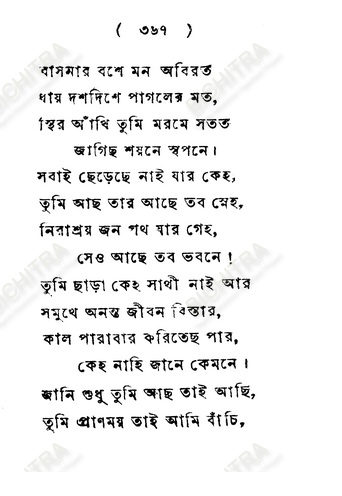 ( ৩৬৭ )
বাসনার বশে মন অবিরত
ধায় দশদিশে পাগলের মত,
স্থির আঁখি তুমি মরমে সতত
জাগিছ শয়নে স্বপনে।
সবাই ছেড়েছে নাই যার কেহ,
তুমি আছ তার আছে তব স্নেহ,
নিরাশ্রয় জন পথ যার গেহ,
সেও আছে তব ভবনে!
তুমি ছাড়া কেহ সাথী নাই আর
সমুখে অনন্ত জীবন বিস্তার,
কাল পারাবার করিতেছ পার,
কেহ নাহি জানে কেমনে।
জানি শুধু তুমি আছ তাই আছি,
তুমি প্রাণময় তাই আমি বাঁচি,